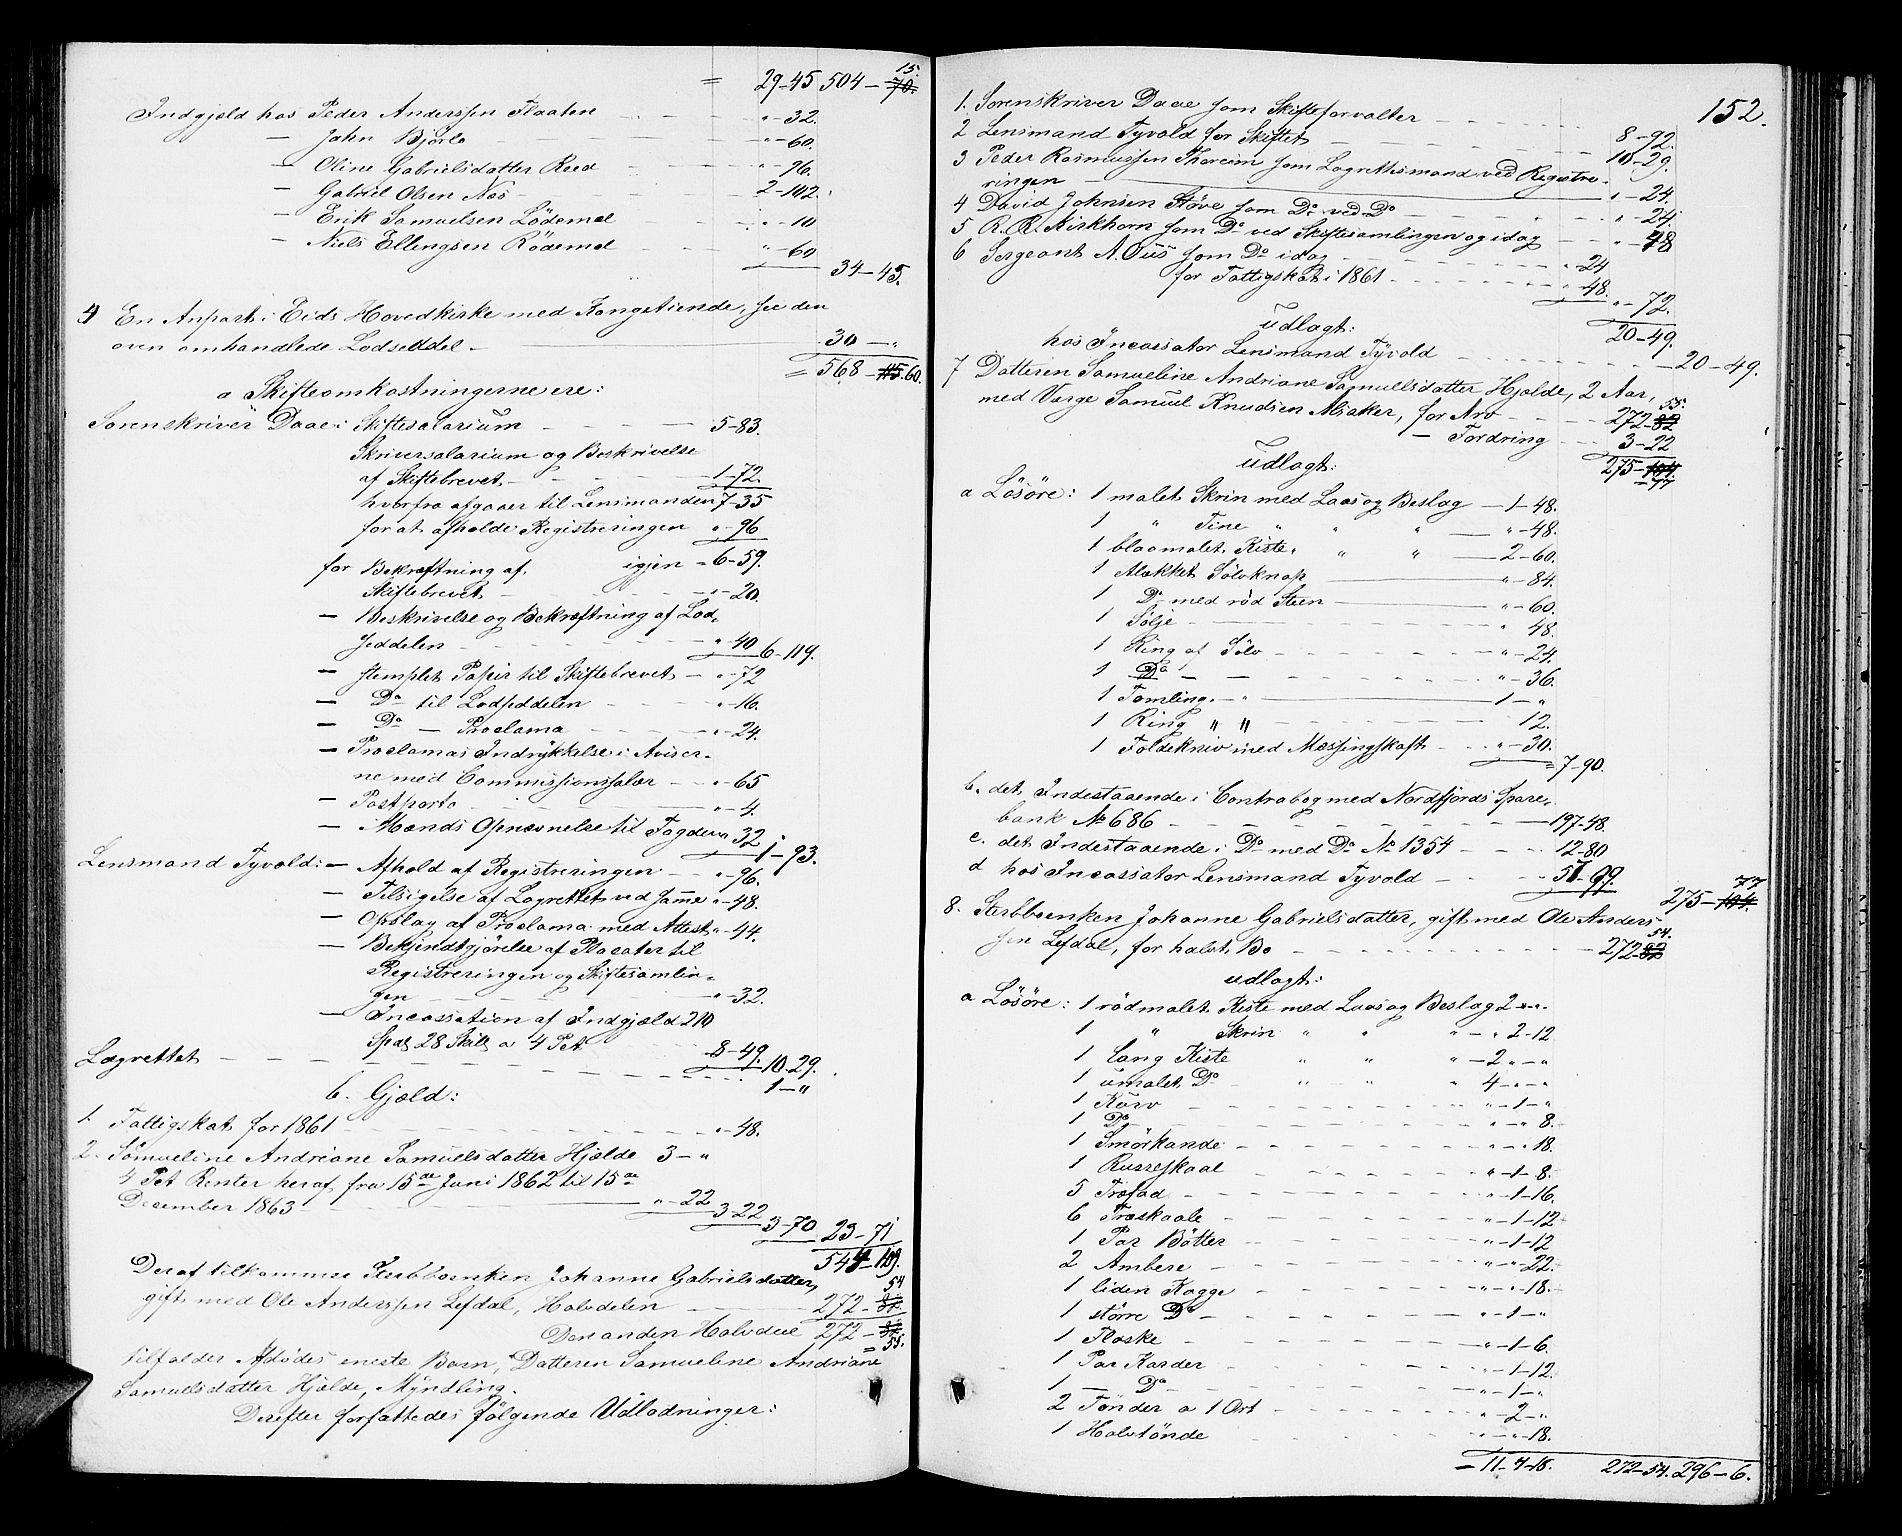 = 29-45 504-70. 15.
Indgjeld hos Peder Anderssen Flaaten "-32.
— John Bjørlo "-60.
— Oline Gabrielsdatter Reed "-96.
— Gabriel Olsen Nos 2-102.
— Erik Samuelsen Lödemel "-10
— Niels Ellingsen Rödemel "-60
34-45.
4 En Anpart i Eids Hovedkirke med Kongetiende, see den
oven omhandlede Lodseddel — 30-"
= 568-115. 60.
a Skifteomkostningerne ere:
Sorenskriver Daae i Skiftesalarium 5-83.
Skriversalarium og Beskrivelse
af Skiftebrevet 1-72.
hvorfra afgaaer til Lensmanden 7-35
for at afholde Registreringen "-96
igjen = 6-59.
for Bekræftning af
Skiftebrevet "-20.
— Beskrivelse og Bekræftning af Lod-
seddelen "-40 6-119.
— stemplet Papir til Skiftebrevet "-72
— Do til Lodseddelen "-16.
— Do — Proclama "-24.
— Proclamas Indrykkelse i Aviser-
ne med Commissionssalær "-65
— Postporto "-4.
— Mænds Opnævnelse til Fogden "-32
1-93.
Lensmand Tyvold: — Afhold af Registreringen "-96.
— Tilsigelse af Lagrettet ved samme "-48.
— Opslag af Proclama med Attest "-44.
— Bekjendtgjörelse af Placater til
Registreringen og Skiftesamlin-
gen "-32.
— Incassation af Indgjæld 210
Spd 28 Skill a 4 Pct. 8-49.
10-29.
Lagrettet 1-"
b. Gjæld:
1. Fattigskat for 1861 "-48.
2. Samueline Andriane Samuelsdatter Hjelde 3-"
4 Pct Renter heraf fra 15de Juni 1862 til 15de
December 1863 "-22
3-22
3-70 23-71
544-109.
Deraf tilkommer Sterbboenken Johanne Gabrielsdatter,
gift med Ole Anderssen Lefdal, Halvdelen 272-82. 54
Den anden Halvdeel 272-82
= 55.
tilfalder Afdödes eneste Barn, Datteren Samueline Andriane
Samuelsdatter Hjelde, Myndling.
Derefter forfattedes følgende Udlodninger:
152.
1. Sorenskriver Daae som Skifteforvalter 8-92.
2 Lensmand Tyvold for Skiftet 10-29.
3 Peder Rasmussen Thoreim som Lagrettesmand ved Registre-
ringen "-24.
4 David Johnsen Støve som Do ved Do "-24.
5 R. R. Kirkhorn som Do ved Skiftesamlingen og idag "-48
6 Sergeant A. Ous som Do idag "-24
for Fattigskat i 1861 "-48.
"-72.
20-49.
Udlagt:
hos Incassator Lensmand Tyvold 20-49.
7 Datteren Samueline Andriane Samuelsdatter Hjelde, 2 Aar,
med Værge Samuel Knudsen Alsaker, for Arv 272-82 55.
— Fordring 3-22
275-104
-77
Udlagt:
a Lösöre: 1 malet Skrin med Laas og Beslag 1-48.
1 " Tine " " " "-48.
1 blaamalet Kiste " " 2-60.
1 Alækket Sölvknap "-84.
1 Do med röd Steen "-60.
1 Sölje " 48.
1 Ring af Sölv "-24.
1 Do "-36.
1 Tomling " 1-"
1 Ring " " 12.
1 Foldekniv med Messingskaft "-30.
= 7-90.
b. det Indestaaende i Contrabog med Nordfjords Spare-
bank No 686 197-48.
c. det Indestaaende i Do med Do No 1354 12-80
d hos Incassator Lensmand Tyvold 57-99.
275-104. 77
8. Sterbboenken Johanne Gabrielsdatter, gift med Ole Anders-
sen Lefdal, for halvt Bo 272-82 54.
udlagt:
a Lösöre: 1 rödmalet Kiste med Laas og Beslag 2-"-"
1 " Skrin " " " "-2-12
1 lang Kiste " " " 2-"-"
1 umalet Do " " " 4-"-"
1 Kurv "-1-"
1 Do "-"-8.
1 Smörkande "-"-18.
1 Russeskaal "-1-8.
5 Træfad "-1-16.
6 Træskaale "-1-12
1 Par Bötter "-1-12
2 Ambere "-"-22.
1 liden Kagge "-"-18.
1 större Do "-1-"
1 Flaske "-1-6.
1 Par Karder "-1-12.
1 — Do "-1-"
2 Tønder a 1 Ort "-2-"
1 Halvtönde "-"-18.
= 11-4-18. 272-54. 296-6.